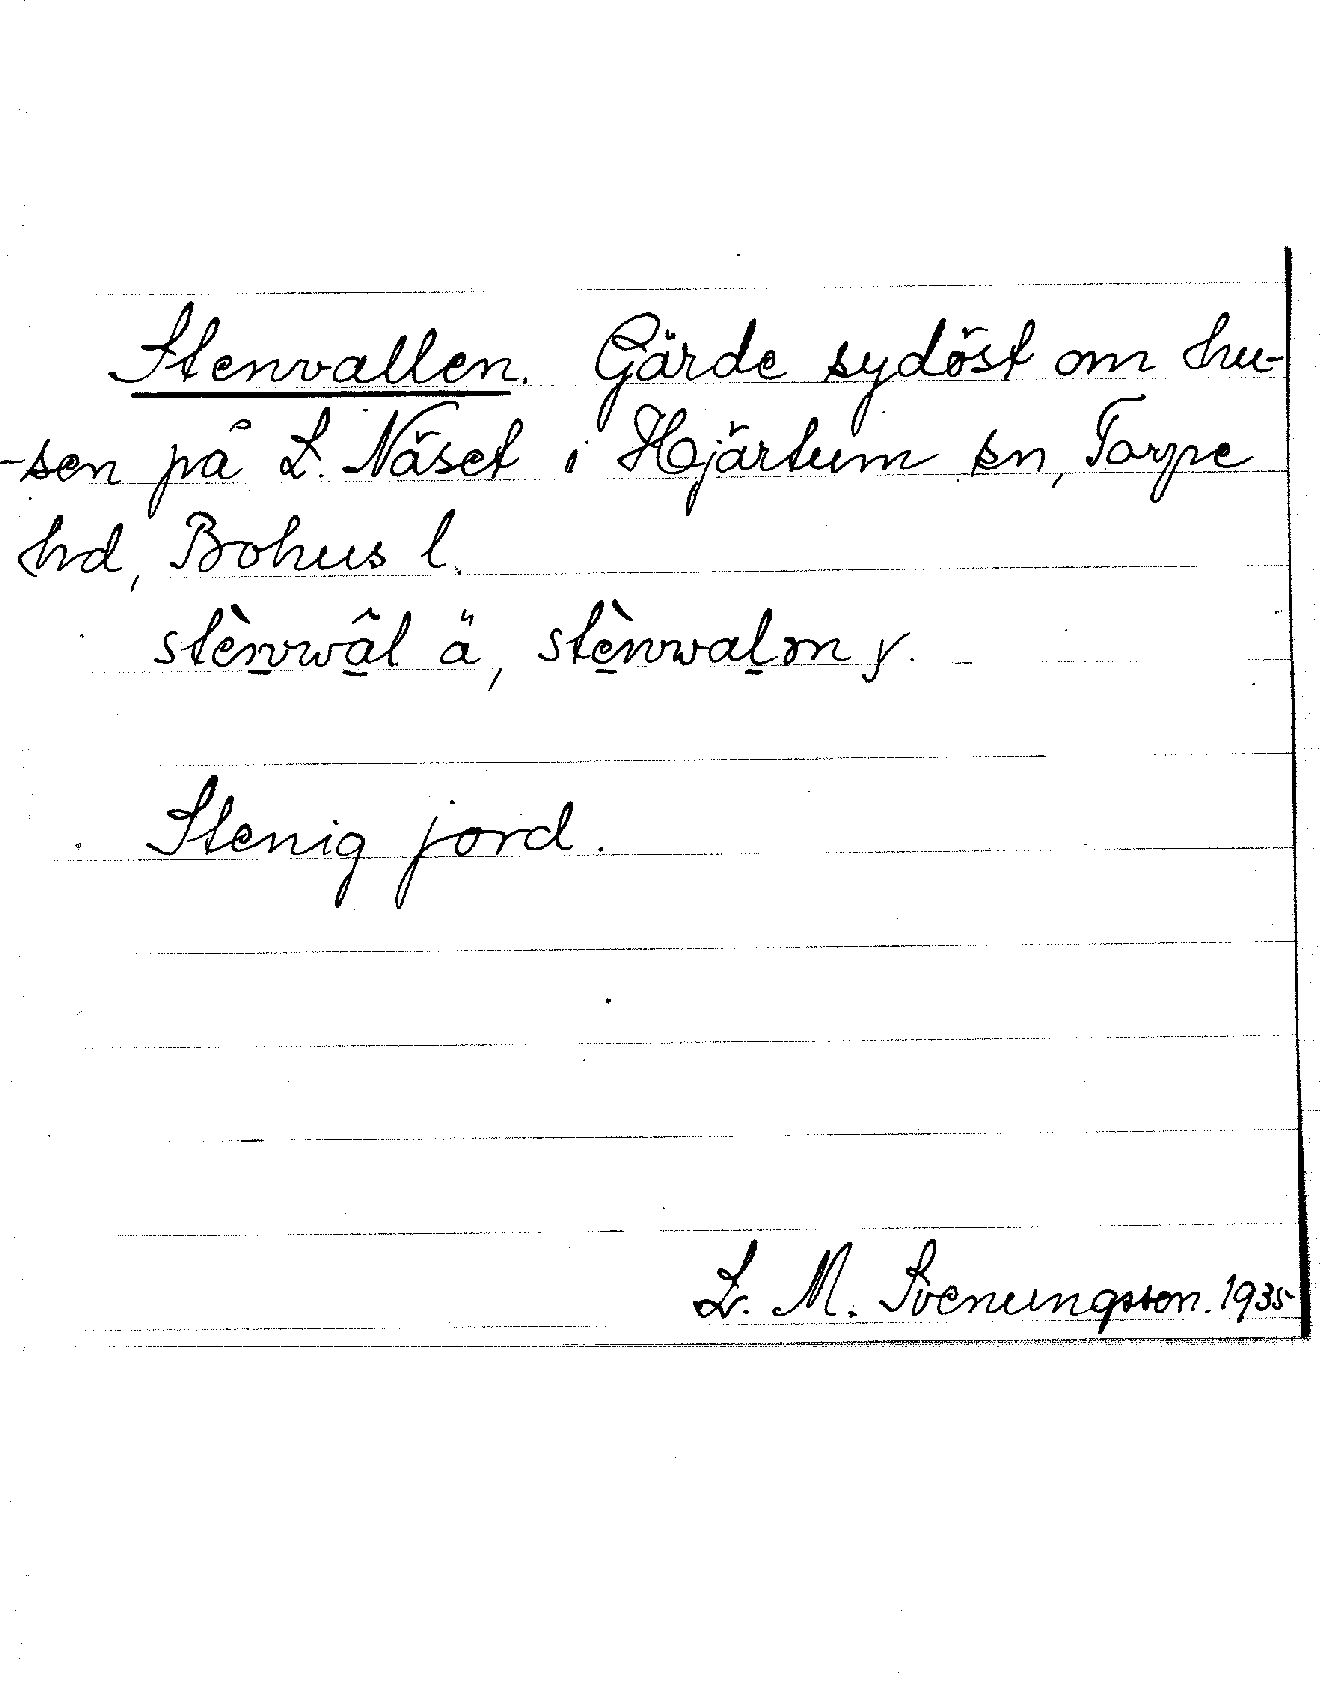 Stenvallen. Gärde sydöst om hu-
-sen på L. Näset i Hjärtum sn, Torpe
hd, Bohus l.
stènvwâl ä, stènvwalm y.
Stenig jord.
L. M. Svenungsson. 1935